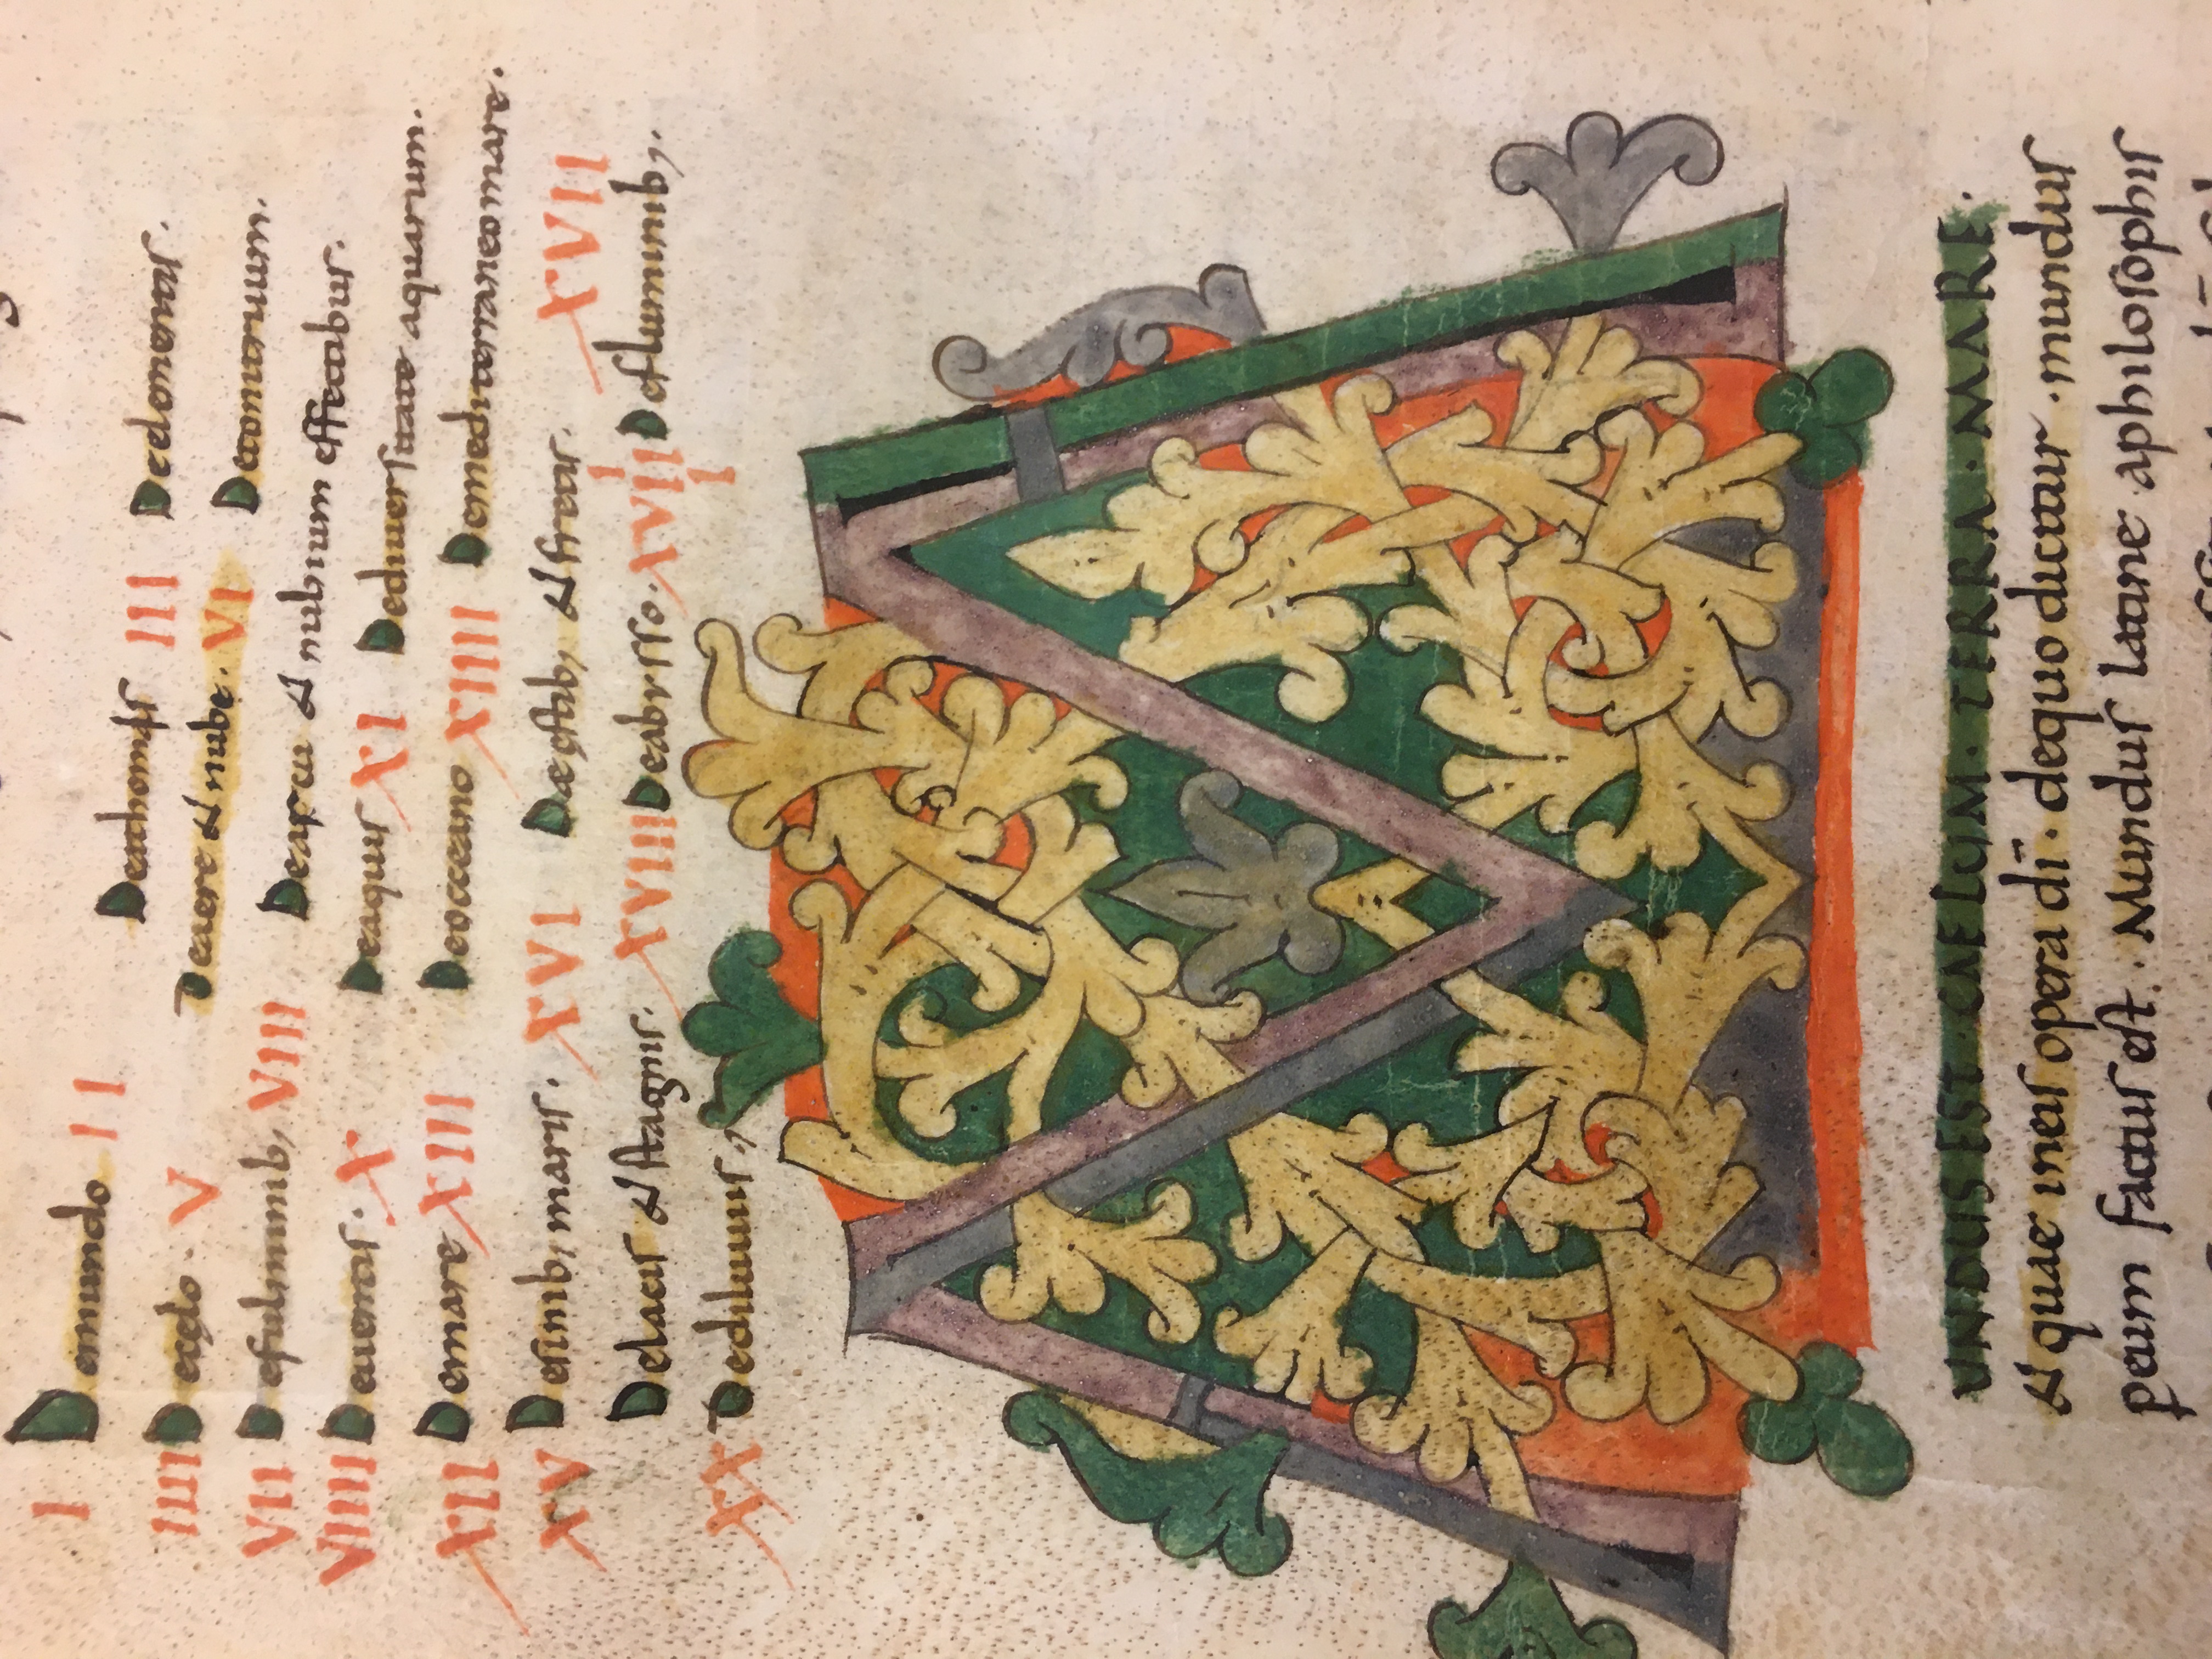 I Demundo II Deathomis III Deelementis.
IIII Decęlo . V Deaere & nube. VI Detonitruum.
VII Defulminib; VIII Dearcu & nubium effectibus.
VIIII Deuentis. X Deaquis XI Dediuersitate aquarum.
XII Demare XIII Deocceano XIIII Demediterraneomare.
XV Desinib; maris. XVI Dęstib; & fretis. XVII
Delacis & stagnis. XVIII Deabisso. XVIIII Defluminib;
XX Dediluuiis;
MUNDUS EST CAELUM. TERRA. MARE.
& quae ineis opera dī. dequo dicitur. mundus
peum factus est. Mundus latine aphilosophis